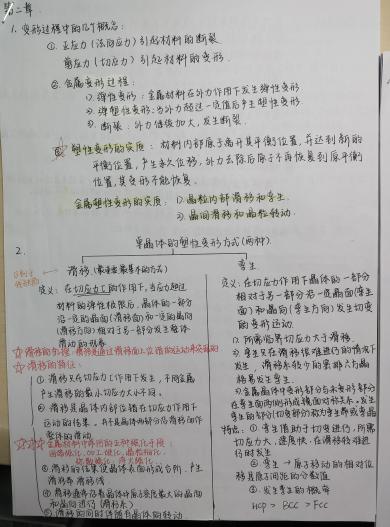 第二章
1. 变形过程中的几个概念:
① 正应力(法向应力)引起材料的断裂
剪应力(切应力)引起材料的变形.
② 金属变形过程:
1). 弹性变形: 金属材料在外力作用下发生弹性变形
2). 弹塑性变形: 当外力超过一定值后产生塑性变形
3). 断裂: 外力继续加大, 发生断裂.
③ 塑性变形的实质: 材料内部原子离开其平衡位置, 并达到新的
平衡位置, 产生永久位移, 外力去除后原子不再恢复到原平衡
位置, 其变形不能恢复.
金属塑性变形的实质: 1). 晶粒内部滑移和孪生.
2). 晶间滑移和晶粒转动.
2.
单晶体的塑性变形方式(两种)
滑移 (最重要最基本的方式)
定义: 在切应力τ的作用下, 当应力超过
材料的弹性极限后, 晶体的一部分
沿一定的晶面(滑移面)和一定的晶向
(滑移方向)相对于另一部分发生整体
滑动的现象
滑移的机理: 滑移是通过滑移面上位错的运动来实现的
滑移的特征:
① 滑移只在切应力τ作用下发生, 不同金属
产生滑移的最小切应力大小不同.
② 滑移是晶体内部位错在切应力作用下
运动的结果. 并不是晶体两部分沿滑移面作
整体的滑动
金属材料中常用的主要强化手段:
固溶强化、加工强化、晶粒细化、
③ 滑移的结果使晶体表面形成台阶, 产生
滑移条滑移线
④ 滑移通常沿着晶体中原子密度最大的晶面
和晶向进行(滑移系)
⑤ 滑移的同时伴随晶体的转动
孪生
定义: 在切应力作用下晶体的一部分
相对于另一部分沿一定晶面(孪生
面)和晶向(孪生方向)发生切变
的变形运动.
1). 所需临界切应力大于滑移.
2). 孪生只在滑移很难进行的情况下
发生, 滑移系较少的密排六方晶
格易发生孪生.
3). 金属晶体中变形部分与未变形部分
在孪生面两侧形成镜面对称关系. 发生
孪生的部分(切变部分)称为孪生带或孪晶
特点: ① 孪生借助于切变进行, 所需
切应力大, 速度快, 在滑移较难进
行时发生
② 孪生 → 原子移动的相对位
移是原子间距的分数值
③. 发生孪生的概率
HCP > BCC > FCC